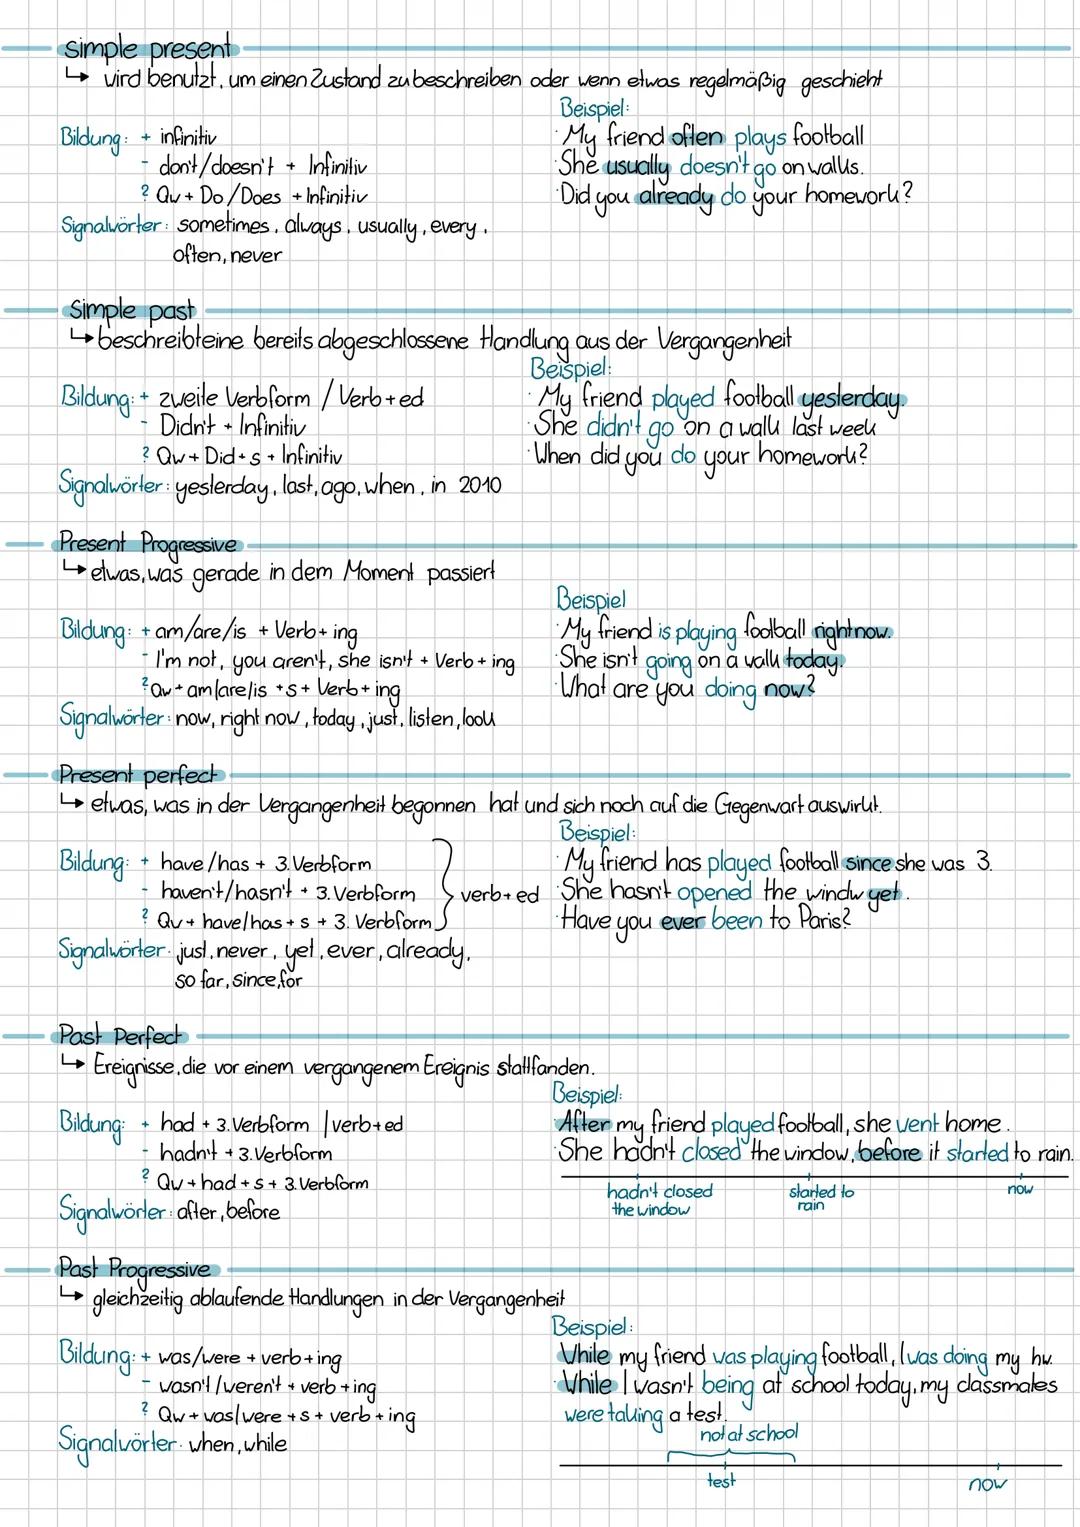 simple present
↳ wird benutzt, um einen Zustand zu beschreiben oder wenn etwas regelmäßig geschieht
Bildung: + infinitiv
- don't/doesn't + Infinitiv
? Qw + Do/Does + Infinitiv
Signalwörter: sometimes, always, usually, every,
often, never
Beispiel:
· My friend often plays football
· She usually doesn't go on walks.
· Did you already do your homework?
Simple past
↳ beschreibteine bereits abgeschlossene Handlung aus der Vergangenheit
Bildung: + zweite Verbform / Verb+ed
- Didn't + Infinitiv
? Qw + Did + s + Infinitiv
Signalwörter: yesterday, last, ago, when, in 2010
Beispiel:
· My friend played football yesterday.
· She didn't go on a walk last week
· When did you do your homework?
Present Progressive
↳ etwas, was gerade in dem Moment passiert
Bildung: + am/are/is + Verb+ing
- I'm not, you aren't, she isn't + Verb+ing
? Qw + am/are/is + s + Verb+ing
Signalwörter: now, right now, today, just, listen, look
Beispiel
· My friend is playing football right now.
· She isn't going on a walk today.
· What are you doing now?
Present perfect
↳ etwas, was in der Vergangenheit begonnen hat und sich noch auf die Gegenwart auswirkt.
Bildung: + have/has + 3.Verbform
- haven't/hasn't + 3.Verbform
? Qw + have/has + s + 3. Verbform
verb+ed
Signalwörter: just, never, yet, ever, already,
so far, since, for
Beispiel:
· My friend has played football since she was 3.
· She hasn't opened the windw yet.
· Have you ever been to Paris?
Past Perfect
↳ Ereignisse, die vor einem vergangenem Ereignis stattfanden.
Bildung: + had + 3.Verbform | verb+ed
- hadn't + 3.Verbform
? Qw + had + s + 3.Verbform
Signalwörter: after, before
Beispiel:
· After my friend played football, she went home.
· She hadn't closed the window, before it started to rain.
hadn't closed
the window
started to
rain
now
Past Progressive
↳ gleichzeitig ablaufende Handlungen in der Vergangenheit
Bildung: + was/were + verb+ing
- wasn't/weren't + verb+ing
? Qw + was/were + s + verb+ing
Signalwörter: when, while
Beispiel:
· While my friend was playing football, I was doing my hw.
· While I wasn't being at school today, my classmates
were taking a test.
not at school
test
now